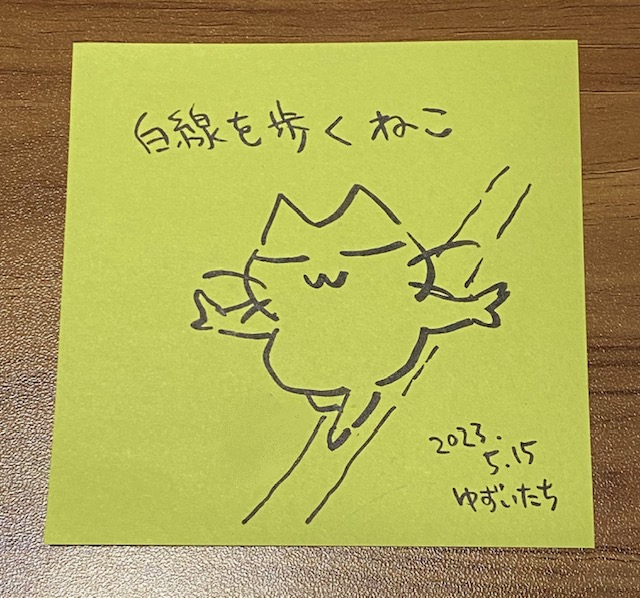 白線を歩くねこ
2023.
5.15
ゆずいたち